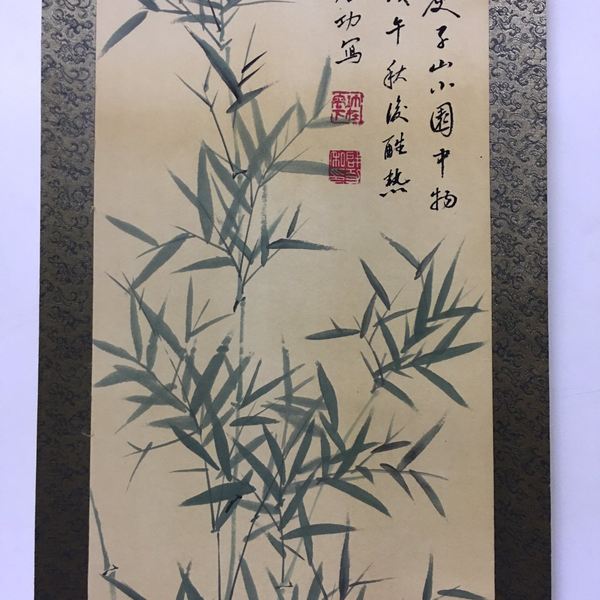 庾子山小園中物
戊午秋後酷熱
功寫